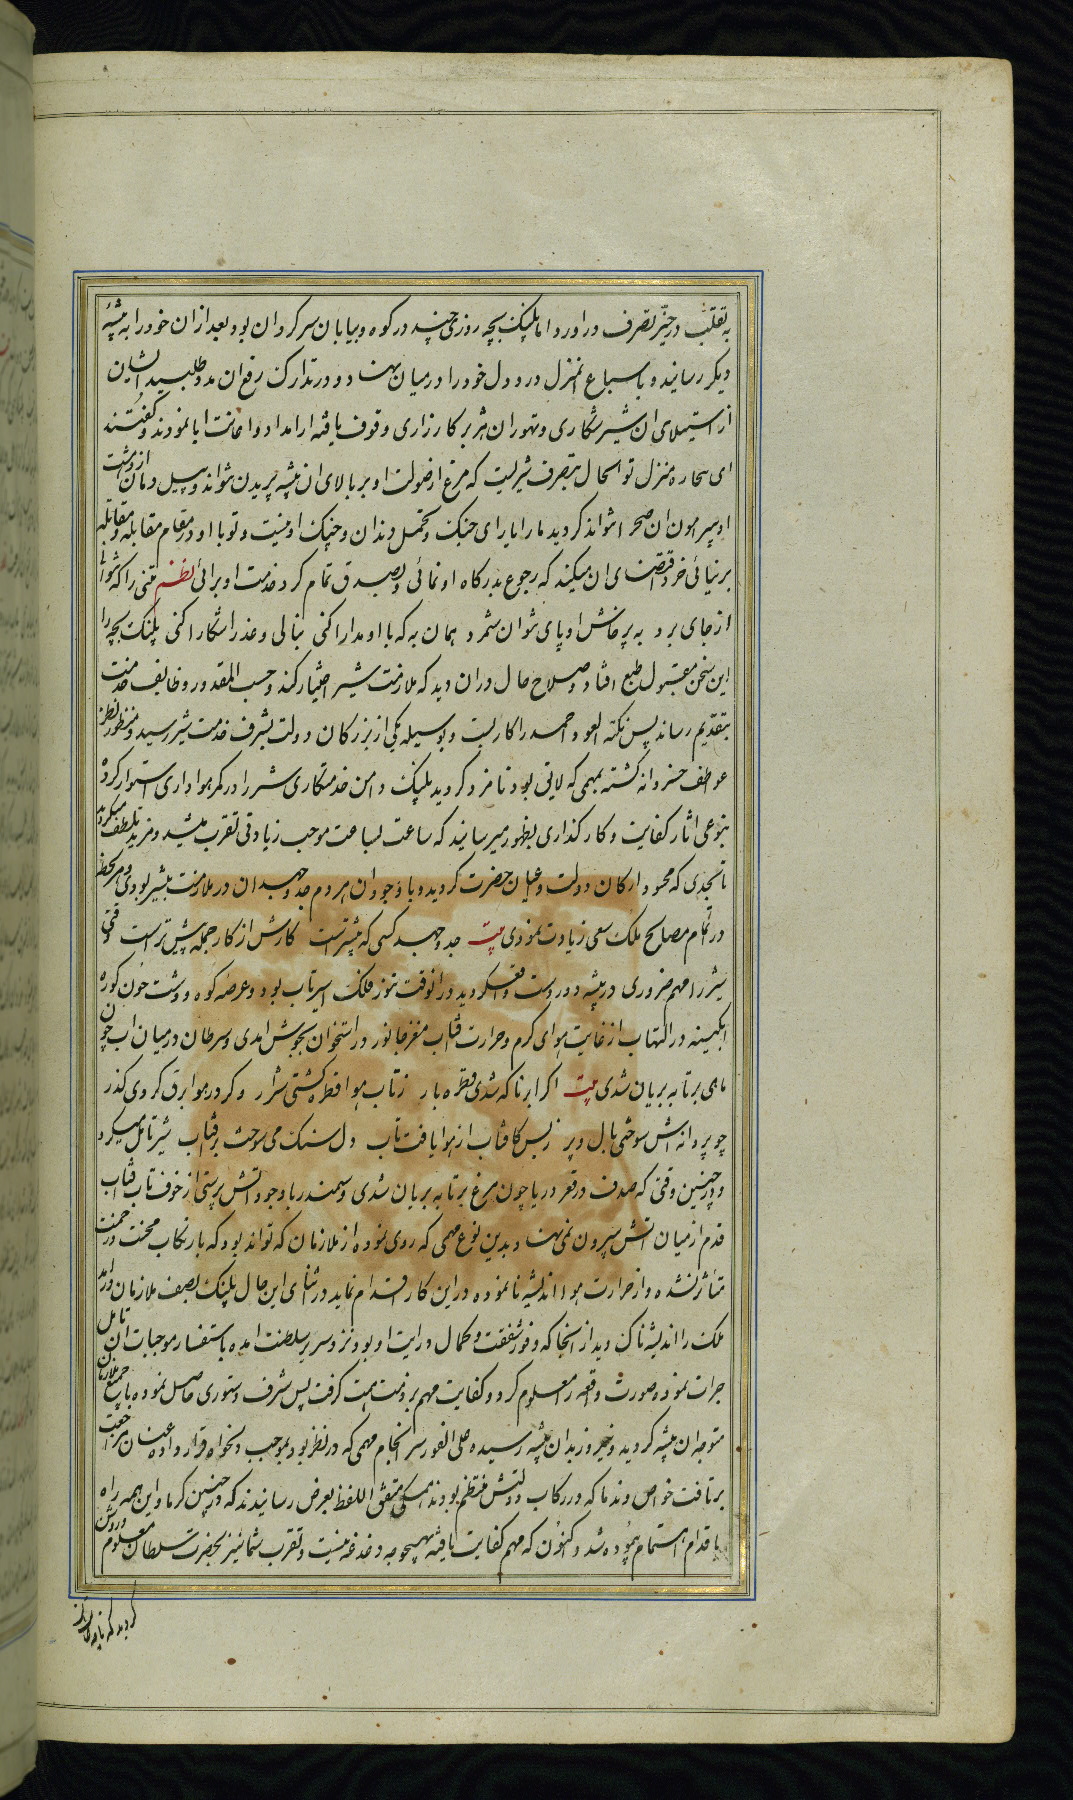 به تغلب در حیز تصرف دراورد اما پلنک بچه روزی چند در کوه و بیابان سرکردان بود و بعد ازان خود را به بیشهٔ
دیکر رسانید و با سباع انمنزل درد دل خود را در میان نهاد و در تدارک رفع ان مدد طلبید ایشان
از استیلای ان شیر شکاری و تهور ان هژبر کارزاری وقوف یافته از امداد و اعانت ابا نمودند و کفتند
ای بیچاره منزل تو الحال بتصرف شیریست که مرغ از صولت او بر بالای ان بیشه پریدن نتواند و پیل دمان از دهشت
او پیرامون ان صحرا نتواند کردید ما را یارای جنک و تحمل دندان و چنک او نیست و تو با او در مقام مقابله و مقاتله
برنیائی خرد اقتضای ان میکند که رجوع بدرکاه او نمائی و بصدق تمام کرد خدمت او برائی نظم تنی را که نتوانی
از جای برد به پرخاش او پای نتوان فشرد همان به که با او مدارا کنی بنالی و عذر اشکارا کنی پلنک بچه را
این سخن مقبول طبع افتاد و صلاح حال دران دید که ملازمت شیر اختیار کند و حسب المقدور وظایف خدمت
بتقدیم رساند پس نکته العود احمد را کار بست و بوسیله یکی از بزرکان دولت بشرف خدمت شیر رسید و منظور نظر
عواطف خسروانه کشته بمهمی که لایق بود نامزد کردید پلنک دامن خدمتکاری شیر را در کمر هواداری استوار کرده
بنوعی اثار کفایت و کارکذاری بظهور میرسانید که ساعت بساعت موجب زیادتی تقرب میشد و مزید تلطف میکردید
تا بحدی که محسود ارکان دولت و اعیان حضرت کردید و با وجود ان هر دم جد و جهد ان در ملازمت بیشتر بودی و هر لحظه
در تمام مصالح ملک سعی زیادت نمودی بیت جد و جهد کسی که بیشترست کارش از کار جمله پیش ترست وقتی
شیر را مهم ضروری در بیشه دوردست واقع کردید و درانوقت تنوز فلک اسیر تاب بود و عرصه کوه و دشت چون کوره
ابکینه در التهاب از غایت هوای کرم و حرارت افتاب مغز جانور در استخوان بجوش امدی و سرطان در میان اب چون
ماهی بر تابه بریان شدی بیت اکر ابر ناکه شدی قطره بار ز تاب هوا قطره کشتی شرار وکر در هوا برق کردی کذر
چو پروانه اش سوختی بال و پر ز بس کافتاب از هوا یافت تاب دل سنک می سوخت بر افتاب شیر تامل میکرد
و در چنین وقتی که صدف در قعر دریا چون مرغ بر تابه بریان شدی و سمندر با وجود اتش پرستی از خوف تاب افتاب
قدم از میان اتش بیرون نمی نهاد و بدین نوع مهمی که روی نموده از ملازمان که تواند بود که بارتکاب محنت و زحمت
متأثر نشده و از حرارت هوا اندیشه نا نموده در این کار اقدام نماید در اثنای این حال پلنک بصف ملازمان درامد
ملک را اندیشه ناک دید از انجا که وفور شفقت و کمال درایت او بود نزد سریر سلطنت امده باستفسار موجبات ان تامل
جرات نموده صورت واقعه را معلوم کرد و کفایت مهم بر ذمت همت کرفت پس شرف دستوری حاصل نموده با جمیع ملازمان
متوجه ان بیشه کردید و نیمروز بدان بیشه رسیده علی الفور سرانجام مهمی که در نظر بود بموجب دلخواه قرار داده عنان مراجعت
برتافت خواص و ندما که در رکاب دولتش منتظم بودند همکی متفق اللفظ بعرض رسانیدند که در چنین کرما و این همه راه
باقدام اهتمام پیموده شد و کنون که مهم کفایت یافته بهیچوجه دغدغه نیست و تقرب شما نیز بحضرت سلطان معلوم و روشن